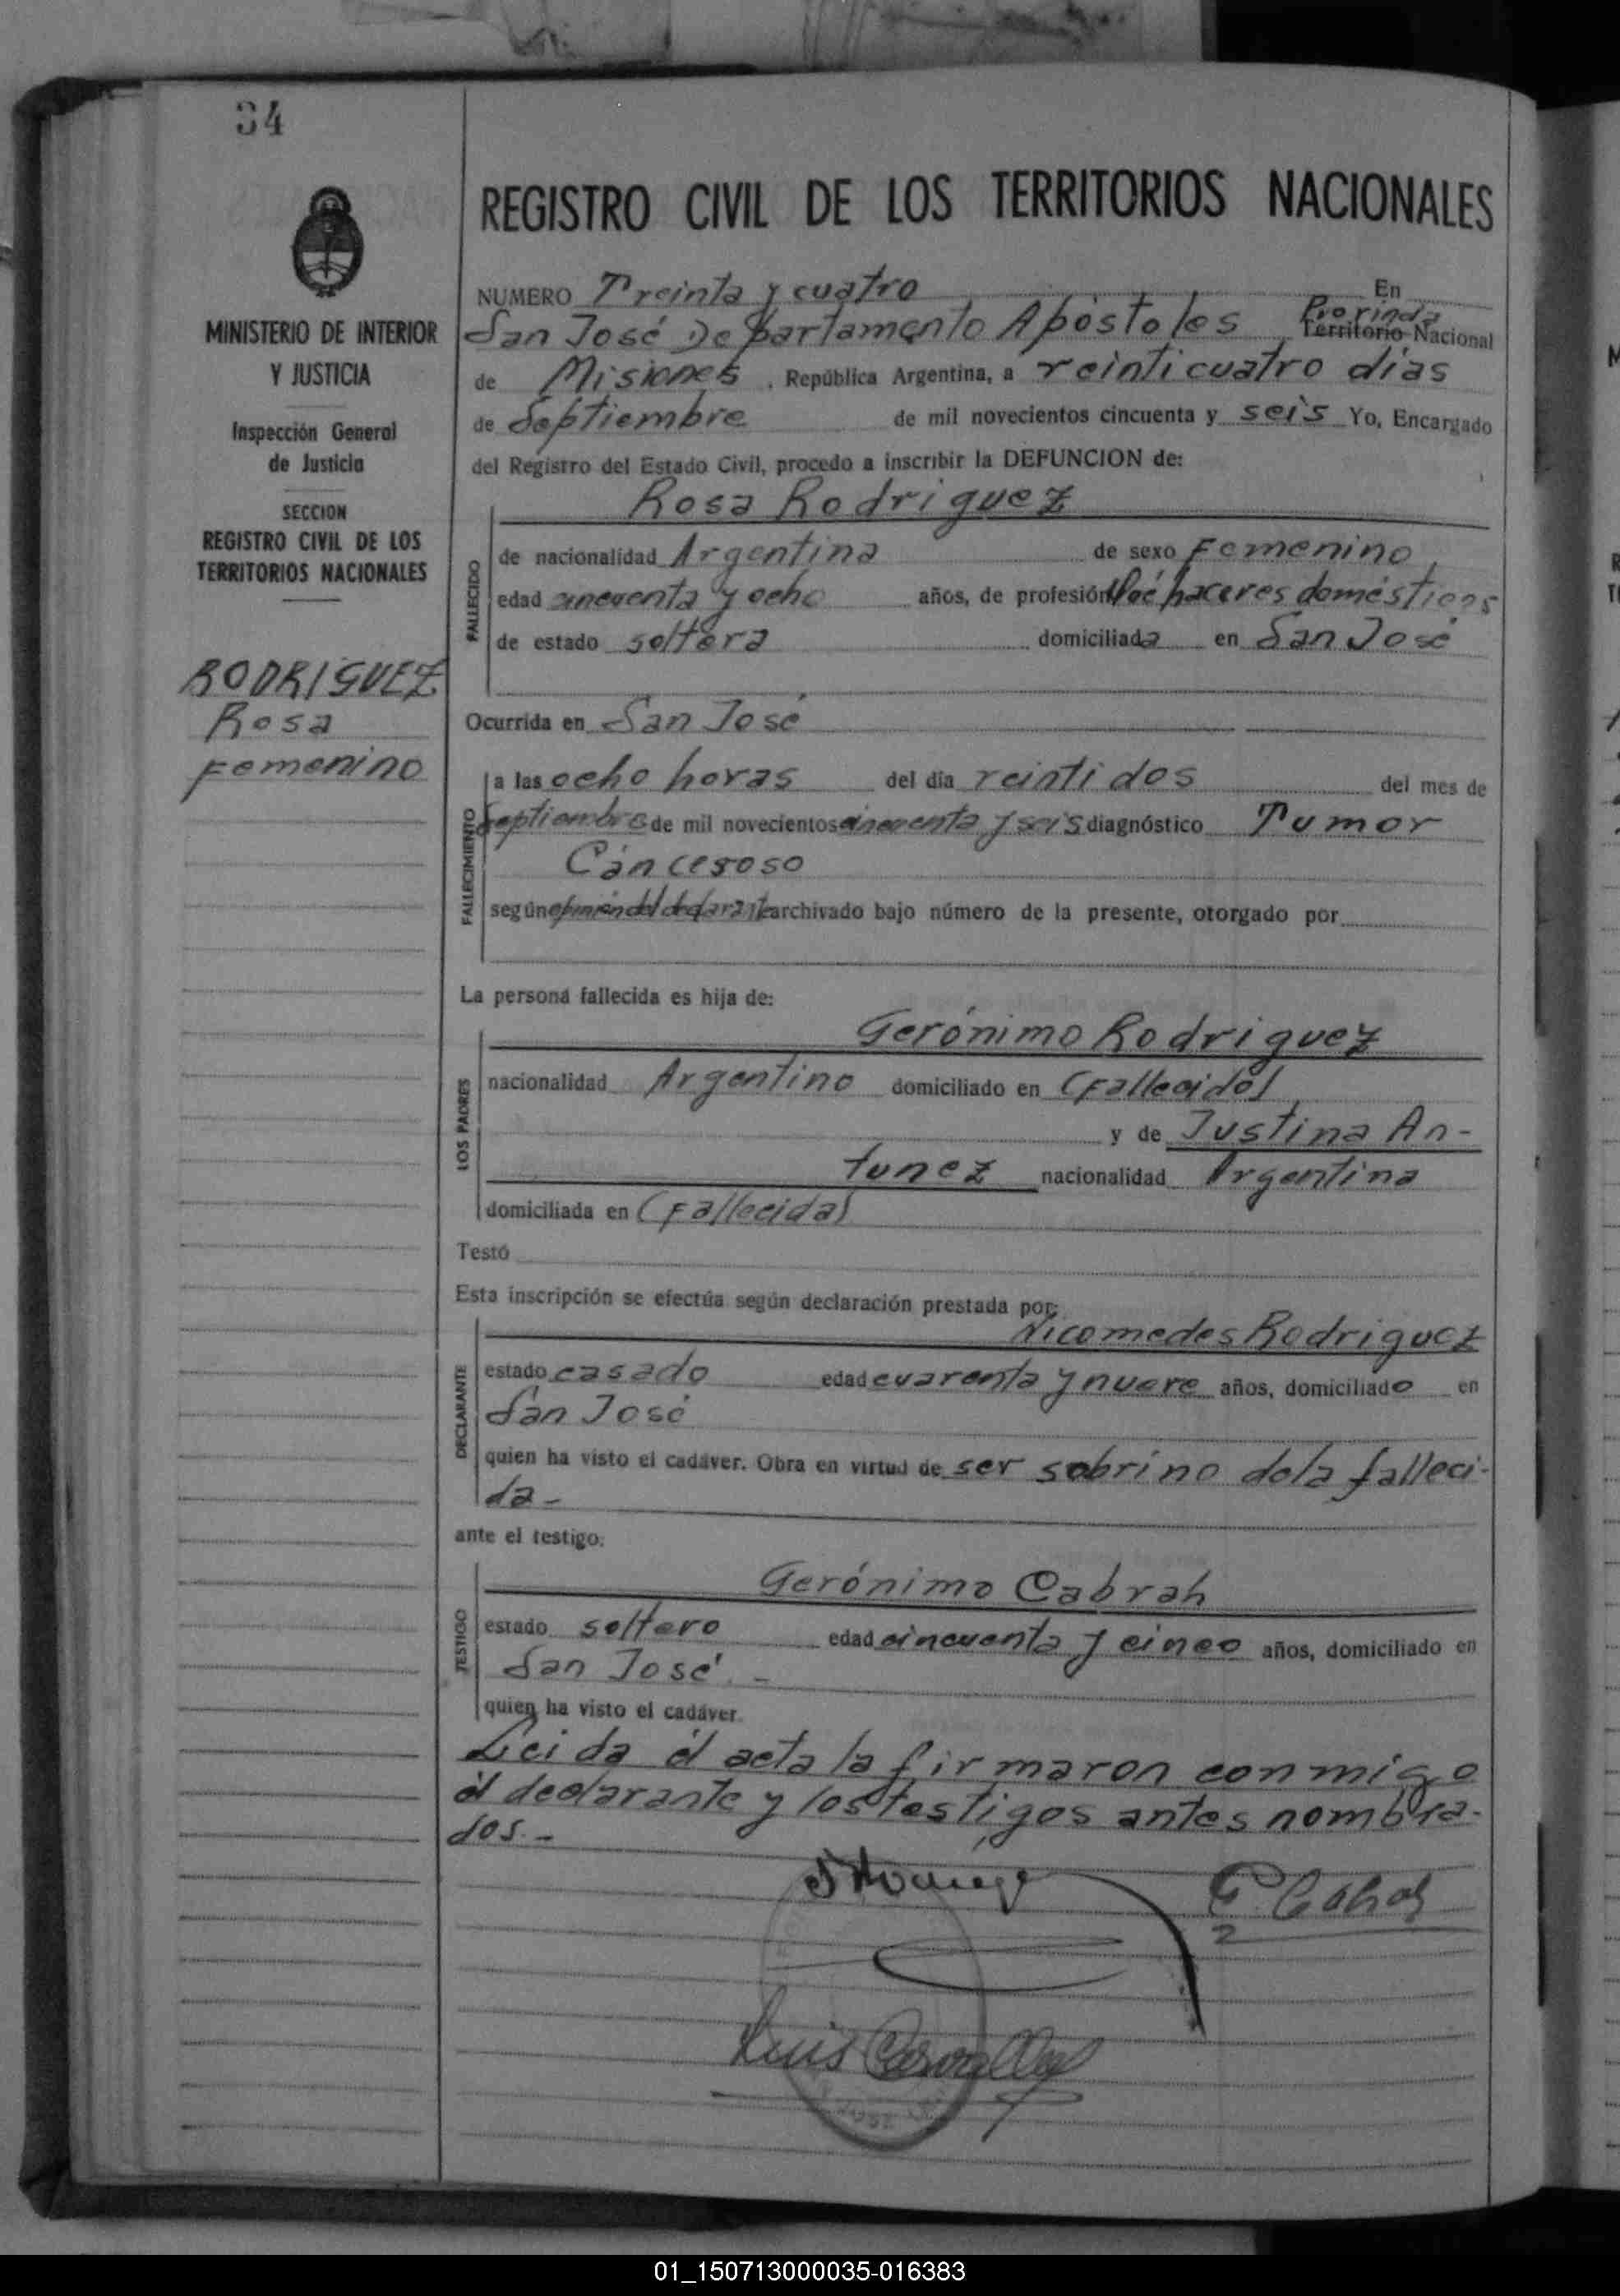 34
MINISTERIO DE INTERIOR
Y JUSTICIA
Inspección General
de Justicia
SECCION
REGISTRO CIVIL DE LOS
TERRITORIOS NACIONALES
RODRIGUEZ
Rosa
Femenino
REGISTRO CIVIL DE LOS TERRITORIOS NACIONALES
NUMERO Treinta y cuatro En
San José Departamento Apóstoles Territorio Nacional
de Misiones, República Argentina, a veinticuatro días
de Septiembre de mil novecientos cincuenta y seis Yo, Encargado
del Registro del Estado Civil, procedo a inscribir la DEFUNCION de:
Rosa Rodriguez
FALLECIDO
de nacionalidad Argentina de sexo Femenino
edad cincuenta y ocho años, de profesión haceres domésticos
de estado soltera domiciliada en San José
Ocurrida en San José
FALLECIMIENTO
a las ocho horas del día veintidos del mes de
Septiembre de mil novecientos cincuenta y seis diagnóstico Tumor
Cánceroso
según opinión del declarante archivado bajo número de la presente, otorgado por
La persona fallecida es hija de:
LOS PADRES
Gerónimo Rodriguez
nacionalidad Argentino domiciliado en (Fallecido)
y de Justina An-
tunez nacionalidad Argentina
domiciliada en (Fallecida)
Testó
Esta inscripción se efectúa según declaración prestada por:
DECLARANTE
Nicomedes Rodriguez
estado casado edad cuarenta y nueve años, domiciliado en
San José
quien ha visto el cadáver. Obra en virtud de ser sobrino dela falleci-
da-
ante el testigo:
TESTIGO
Gerónimo Cabrah
estado soltero edad cincuenta y cinco años, domiciliado en
San José. -
quien ha visto el cadáver.
Leida él acta la firmaron conmigo
él declarante y los testigos antes nombra-
dos.-
Luis
01_150713000035-016383